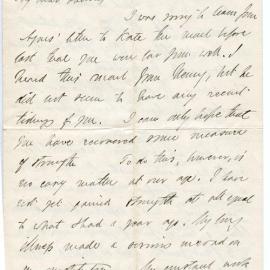 I was sorry to learn from
Agnes' letter to Kate the mail before
last that you were far from well. I
heard this mail from Henry, but he
did not seem to have any recent
tidings of you. I can only hope that
you have recovered some measure
of strength. To do this, however, is
no easy matter at our age. I have
not yet gained strength at all equal
to what I had a year ago. My long
illness made a serious inroad on
my constant work